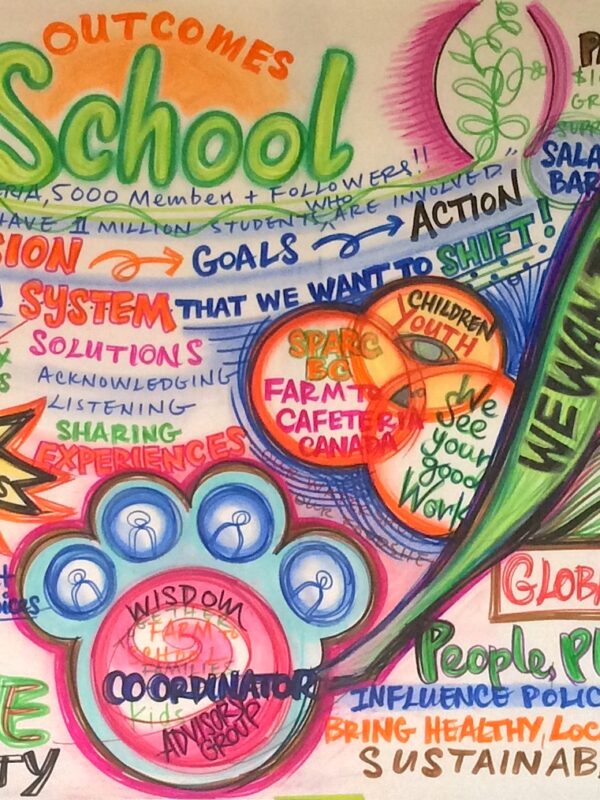 OUTCOMES
School
ERIA, 5000 Members + FOLLOWERS!!
HAVE 1 MILLION STUDENTS WHO ARE INVOLVED."
SION → GOALS → ACTION
SYSTEM THAT WE WANT TO SHIFT!
SOLUTIONS
ACKNOWLEDGING
LISTENING
SHARING
EXPERIENCES
CHILDREN
YOUTH
SPARC
BC
FARM TO
CAFETERIA
CANADA
We
See
your
good
Work
SALA
BAR
WE WAN
WISDOM
FARM TO
SCHOOL
FAMILIES
COORDINATOR
Kids
ADVISORY
GROUP
GLOBA
People, Pl
INFLUENCE POLIC
BRING HEALTHY, LOC
SUSTAINAB
E
TY